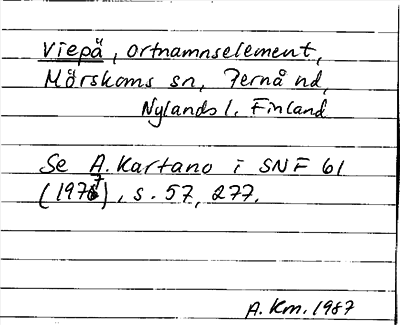 Viepä, ortnamnselement,
Mörskoms sn, Pernå hd,
Nylands l. Finland
Se A. Kartano i SNF 61
(1977), s. 57, 277.
A. Km. 1987